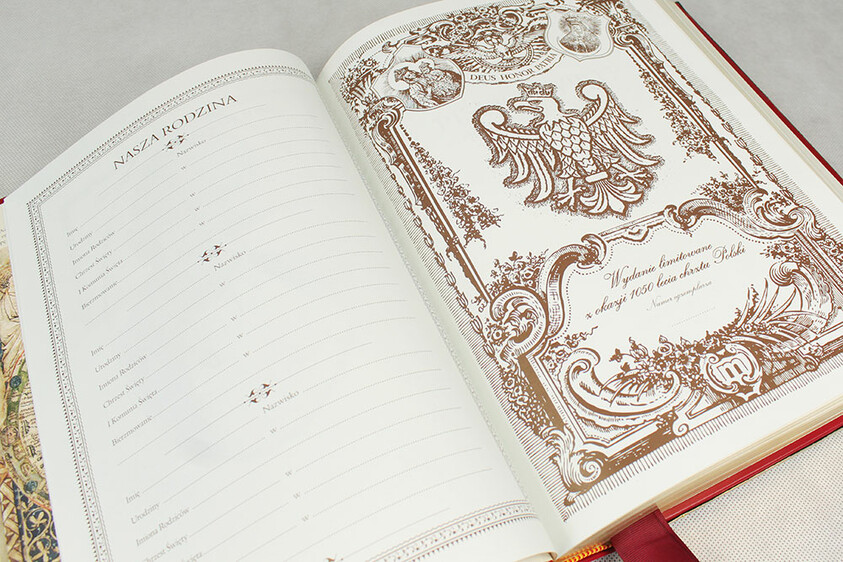 NASZA RODZINA
Nazwisko
Imię
Urodzony w
Imiona Rodziców
Chrzest Święty w
I Komunia Święta w
Bierzmowanie
Nazwisko
Imię
Urodzony w
Imiona Rodziców
Chrzest Święty w
I Komunia Święta w
Bierzmowanie
Nazwisko
Imię
Urodzony w
Imiona Rodziców
Chrzest Święty w
I Komunia Święta
DEUS HONOR PATRIA
Wydanie limitowane
z okazji 1050 lecia chrztu Polski
Numer egzemplarza
m